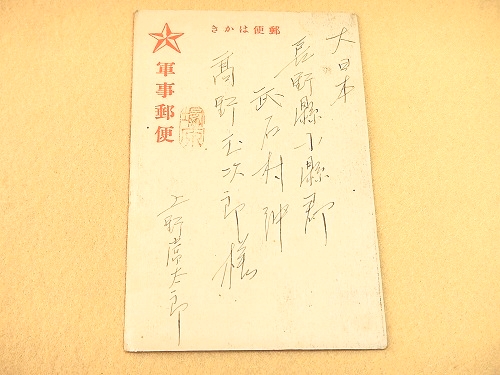 郵便はかき
大日本
長野縣小縣郡
武石村沖
高野玉次郎様
軍事郵便
上野
太郎